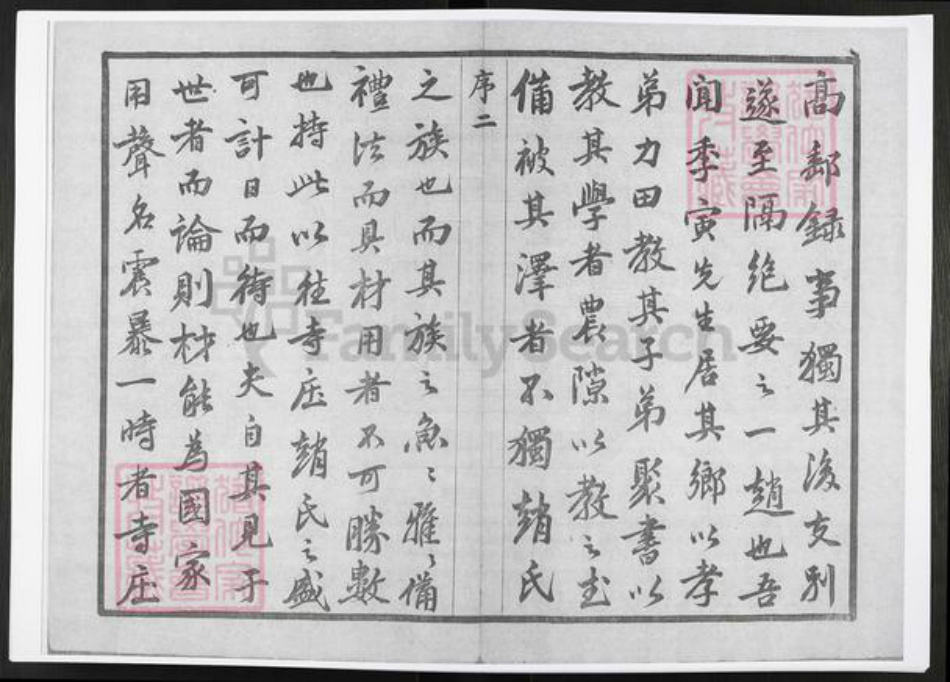 高郵錄事獨其後支別
遂至隔絶要之一趙也吾
聞季寅先生居其鄉以孝
弟力田教其子弟聚書以
教其學者農隙以教之武
備被其澤者不獨趙氏
序二
之族也而其族之魚〻雅〻備
禮法而具材用者不可勝數
也持此以往寺庄趙氏之盛
可計日而待也夫自其見于
世者而論則材能為國家
用聲名震暴一時者寺庄
FamilySearch